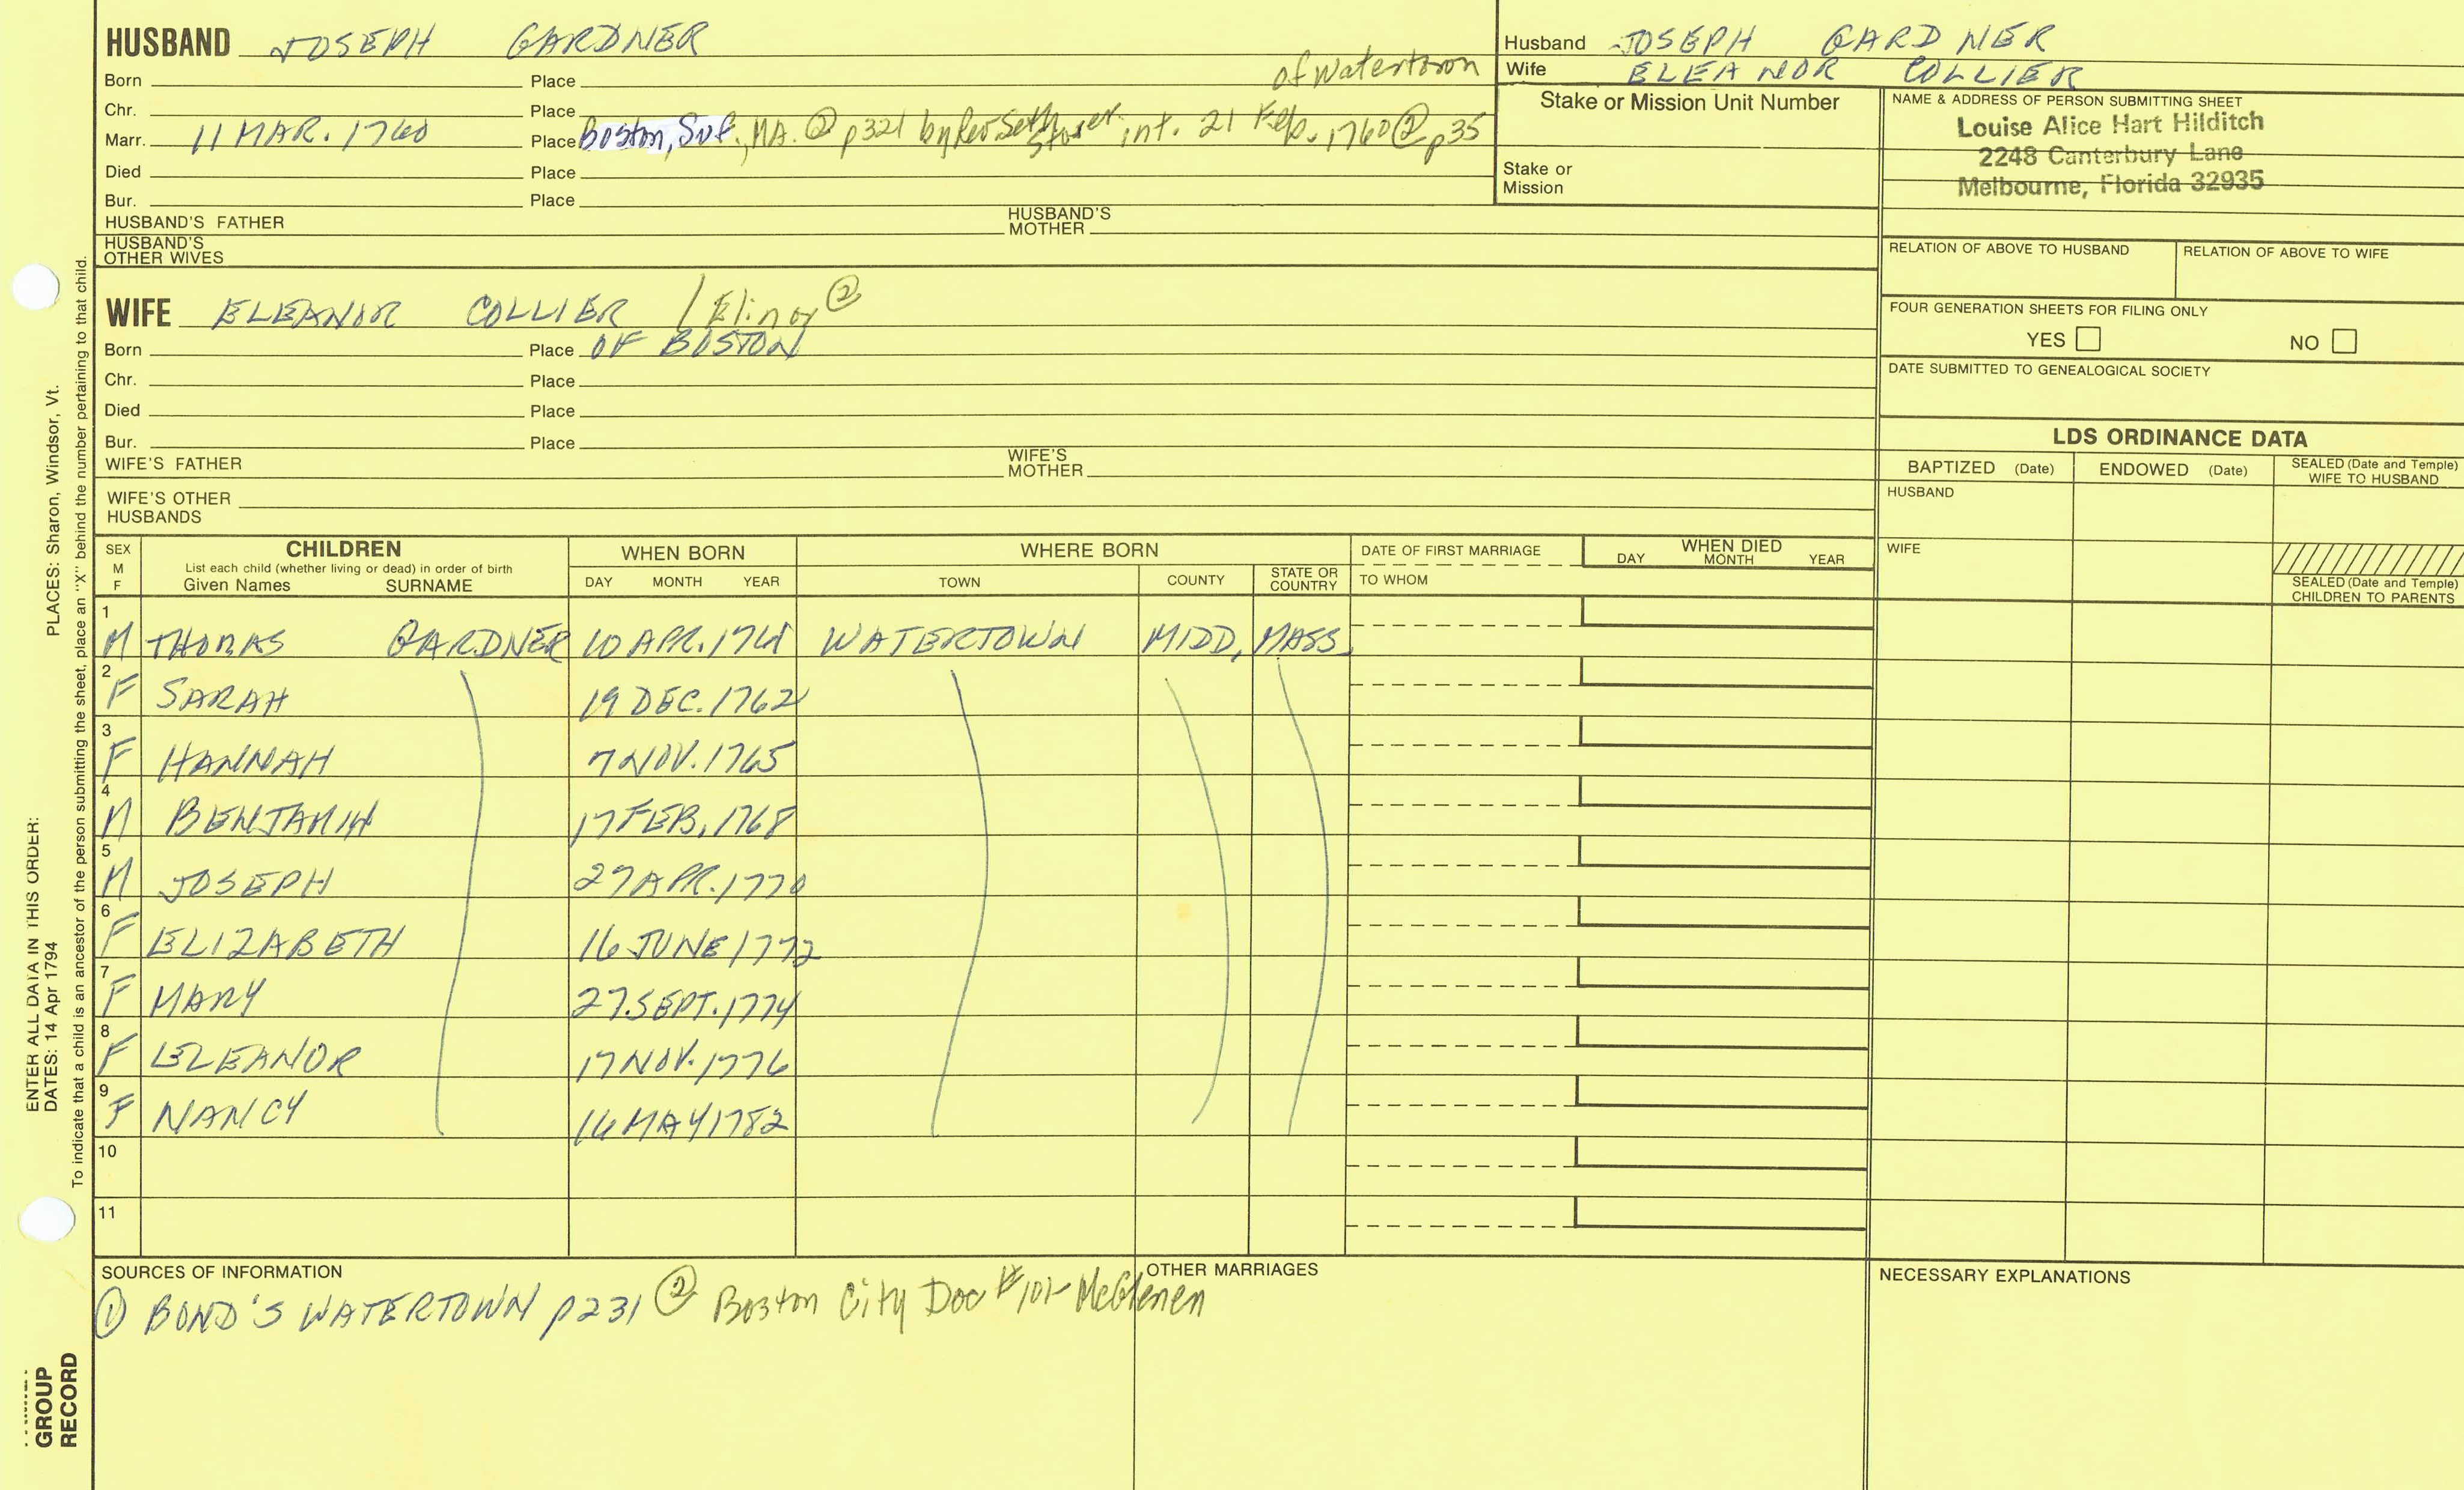 HUSBAND JOSEPH GARDNER
Born Place of Watertown
Chr. Place
Marr. 11 MAR. 1760 Place Boston, Suf., MA. ② p321 by Rev Seth Storer int. 21 Feb. 1760 ② p35
Died Place
Bur. Place
HUSBAND'S FATHER HUSBAND'S MOTHER
HUSBAND'S OTHER WIVES
Husband JOSEPH GARDNER
Wife ELEANOR COLLIER
Stake or Mission Unit Number
Stake or Mission
NAME & ADDRESS OF PERSON SUBMITTING SHEET
Louise Alice Hart Hilditch
2248 Canterbury Lane
Melbourne, Florida 32935
RELATION OF ABOVE TO HUSBAND RELATION OF ABOVE TO WIFE
FOUR GENERATION SHEETS FOR FILING ONLY
YES NO
DATE SUBMITTED TO GENEALOGICAL SOCIETY
WIFE ELEANOR COLLIER / Elinor ②
Born Place OF BOSTON
Chr. Place
Died Place
Bur. Place
WIFE'S FATHER WIFE'S MOTHER
WIFE'S OTHER HUSBANDS
LDS ORDINANCE DATA
BAPTIZED (Date) ENDOWED (Date) SEALED (Date and Temple) WIFE TO HUSBAND
HUSBAND
WIFE
SEALED (Date and Temple) CHILDREN TO PARENTS
SEX M F
CHILDREN
List each child (whether living or dead) in order of birth
Given Names SURNAME
WHEN BORN
DAY MONTH YEAR
WHERE BORN
TOWN COUNTY STATE OR COUNTRY
DATE OF FIRST MARRIAGE
TO WHOM
WHEN DIED
DAY MONTH YEAR
1 M THOMAS GARDNER 10 APR. 1761 WATERTOWN MIDD, MASS.
2 F SARAH 19 DEC. 1762
3 F HANNAH 7 NOV. 1765
4 M BENJAMIN 17 FEB. 1768
5 M JOSEPH 27 APR. 1770
6 F ELIZABETH 16 JUNE 1772
7 F MARY 27 SEPT. 1774
8 F ELEANOR 17 NOV. 1776
9 F NANCY 16 MAY 1782
10
11
SOURCES OF INFORMATION
① BOND'S WATERTOWN p231 ② Boston City Doc #101- McGlenen
OTHER MARRIAGES
NECESSARY EXPLANATIONS
PLACES: Sharon, Windsor, Vt.
To indicate that a child is an ancestor of the person submitting the sheet, place an "X" behind the number pertaining to that child.
ENTER ALL DATA IN THIS ORDER:
DATES: 14 Apr 1794
GROUP
RECORD